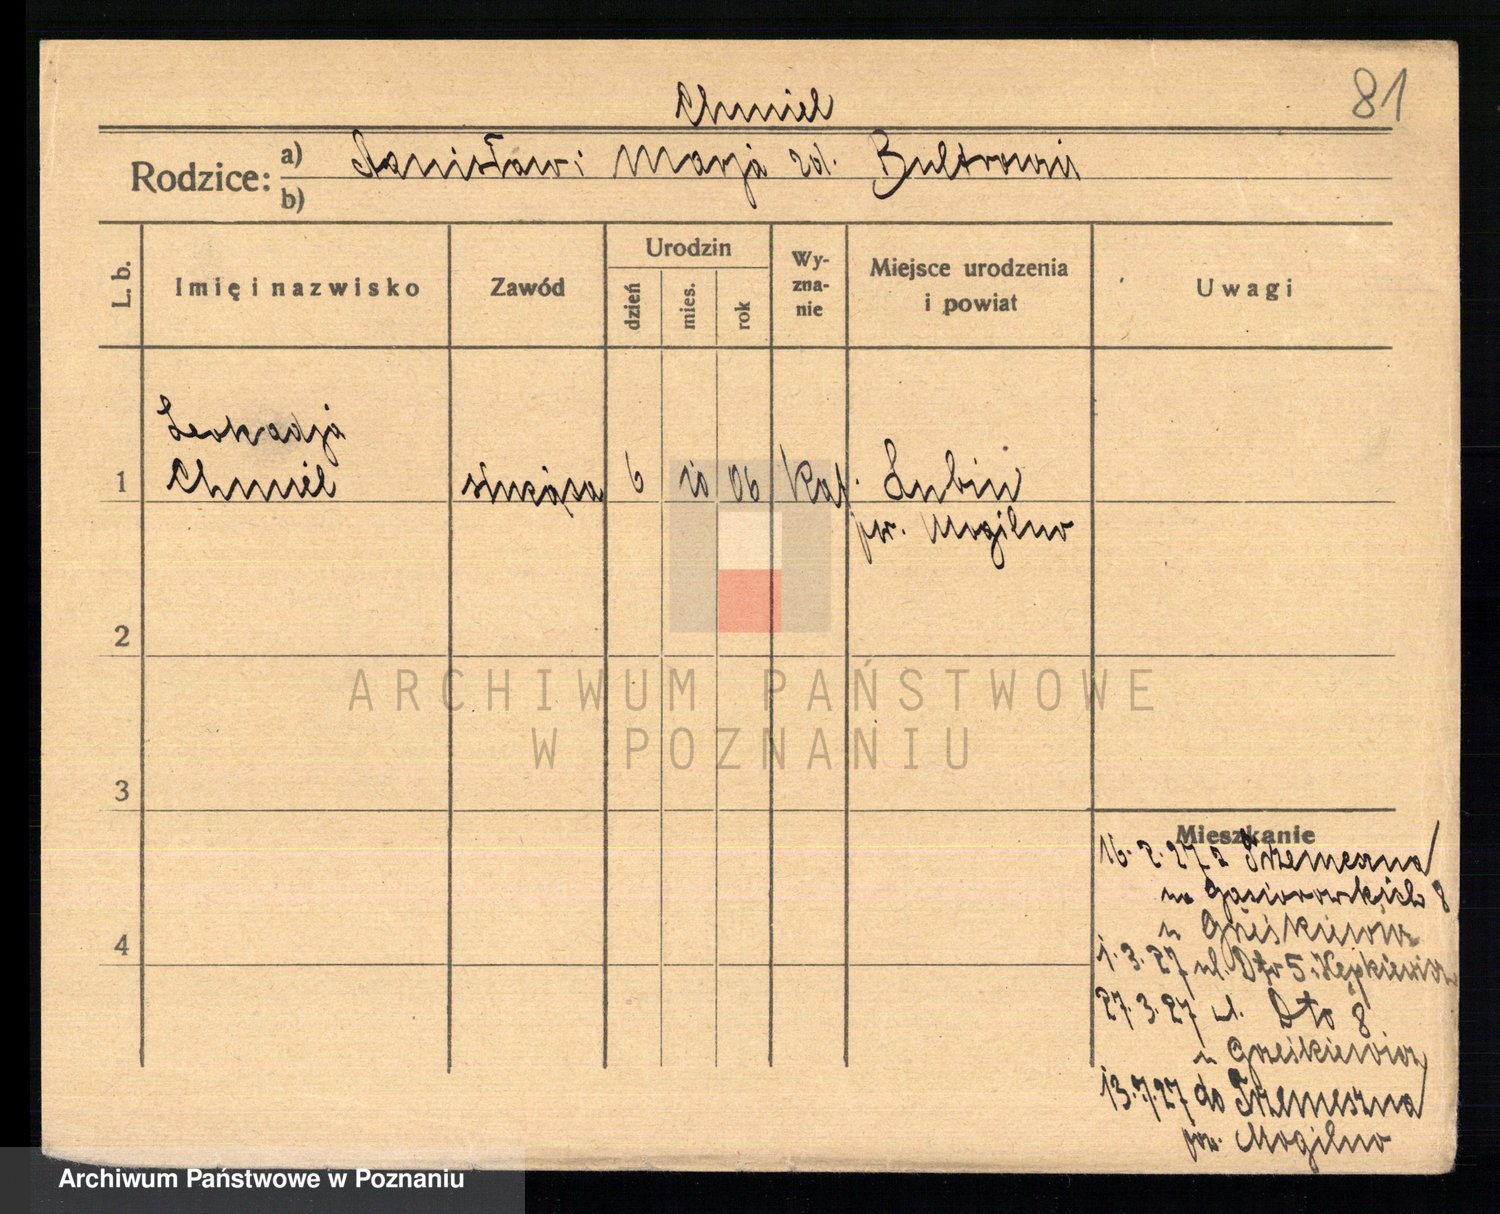 81
Chmiel
Rodzice: a) Stanisław i Marja zd.
b)
L. b.
Imię i nazwisko
Zawód
Urodzin
dzień
mies.
rok
Wy-
zna-
nie
Miejsce urodzenia
i powiat
Uwagi
Leokadja
1 Chmiel służąca 6 10 06 kat. Lubiń
pw. Mogilno
2
3
4
ARCHIWUM PAŃSTWOWE
W POZNANIU
Mieszkanie
16. 2. 27 z Trzemeszna
Gąsiorowskich 8
u
1. 3. 27 ul. Dto 5
27. 3. 27 ul. Dto 8
u
13. 7. 27 do Trzemeszna
pw. Mogilno
Archiwum Państwowe w Poznaniu